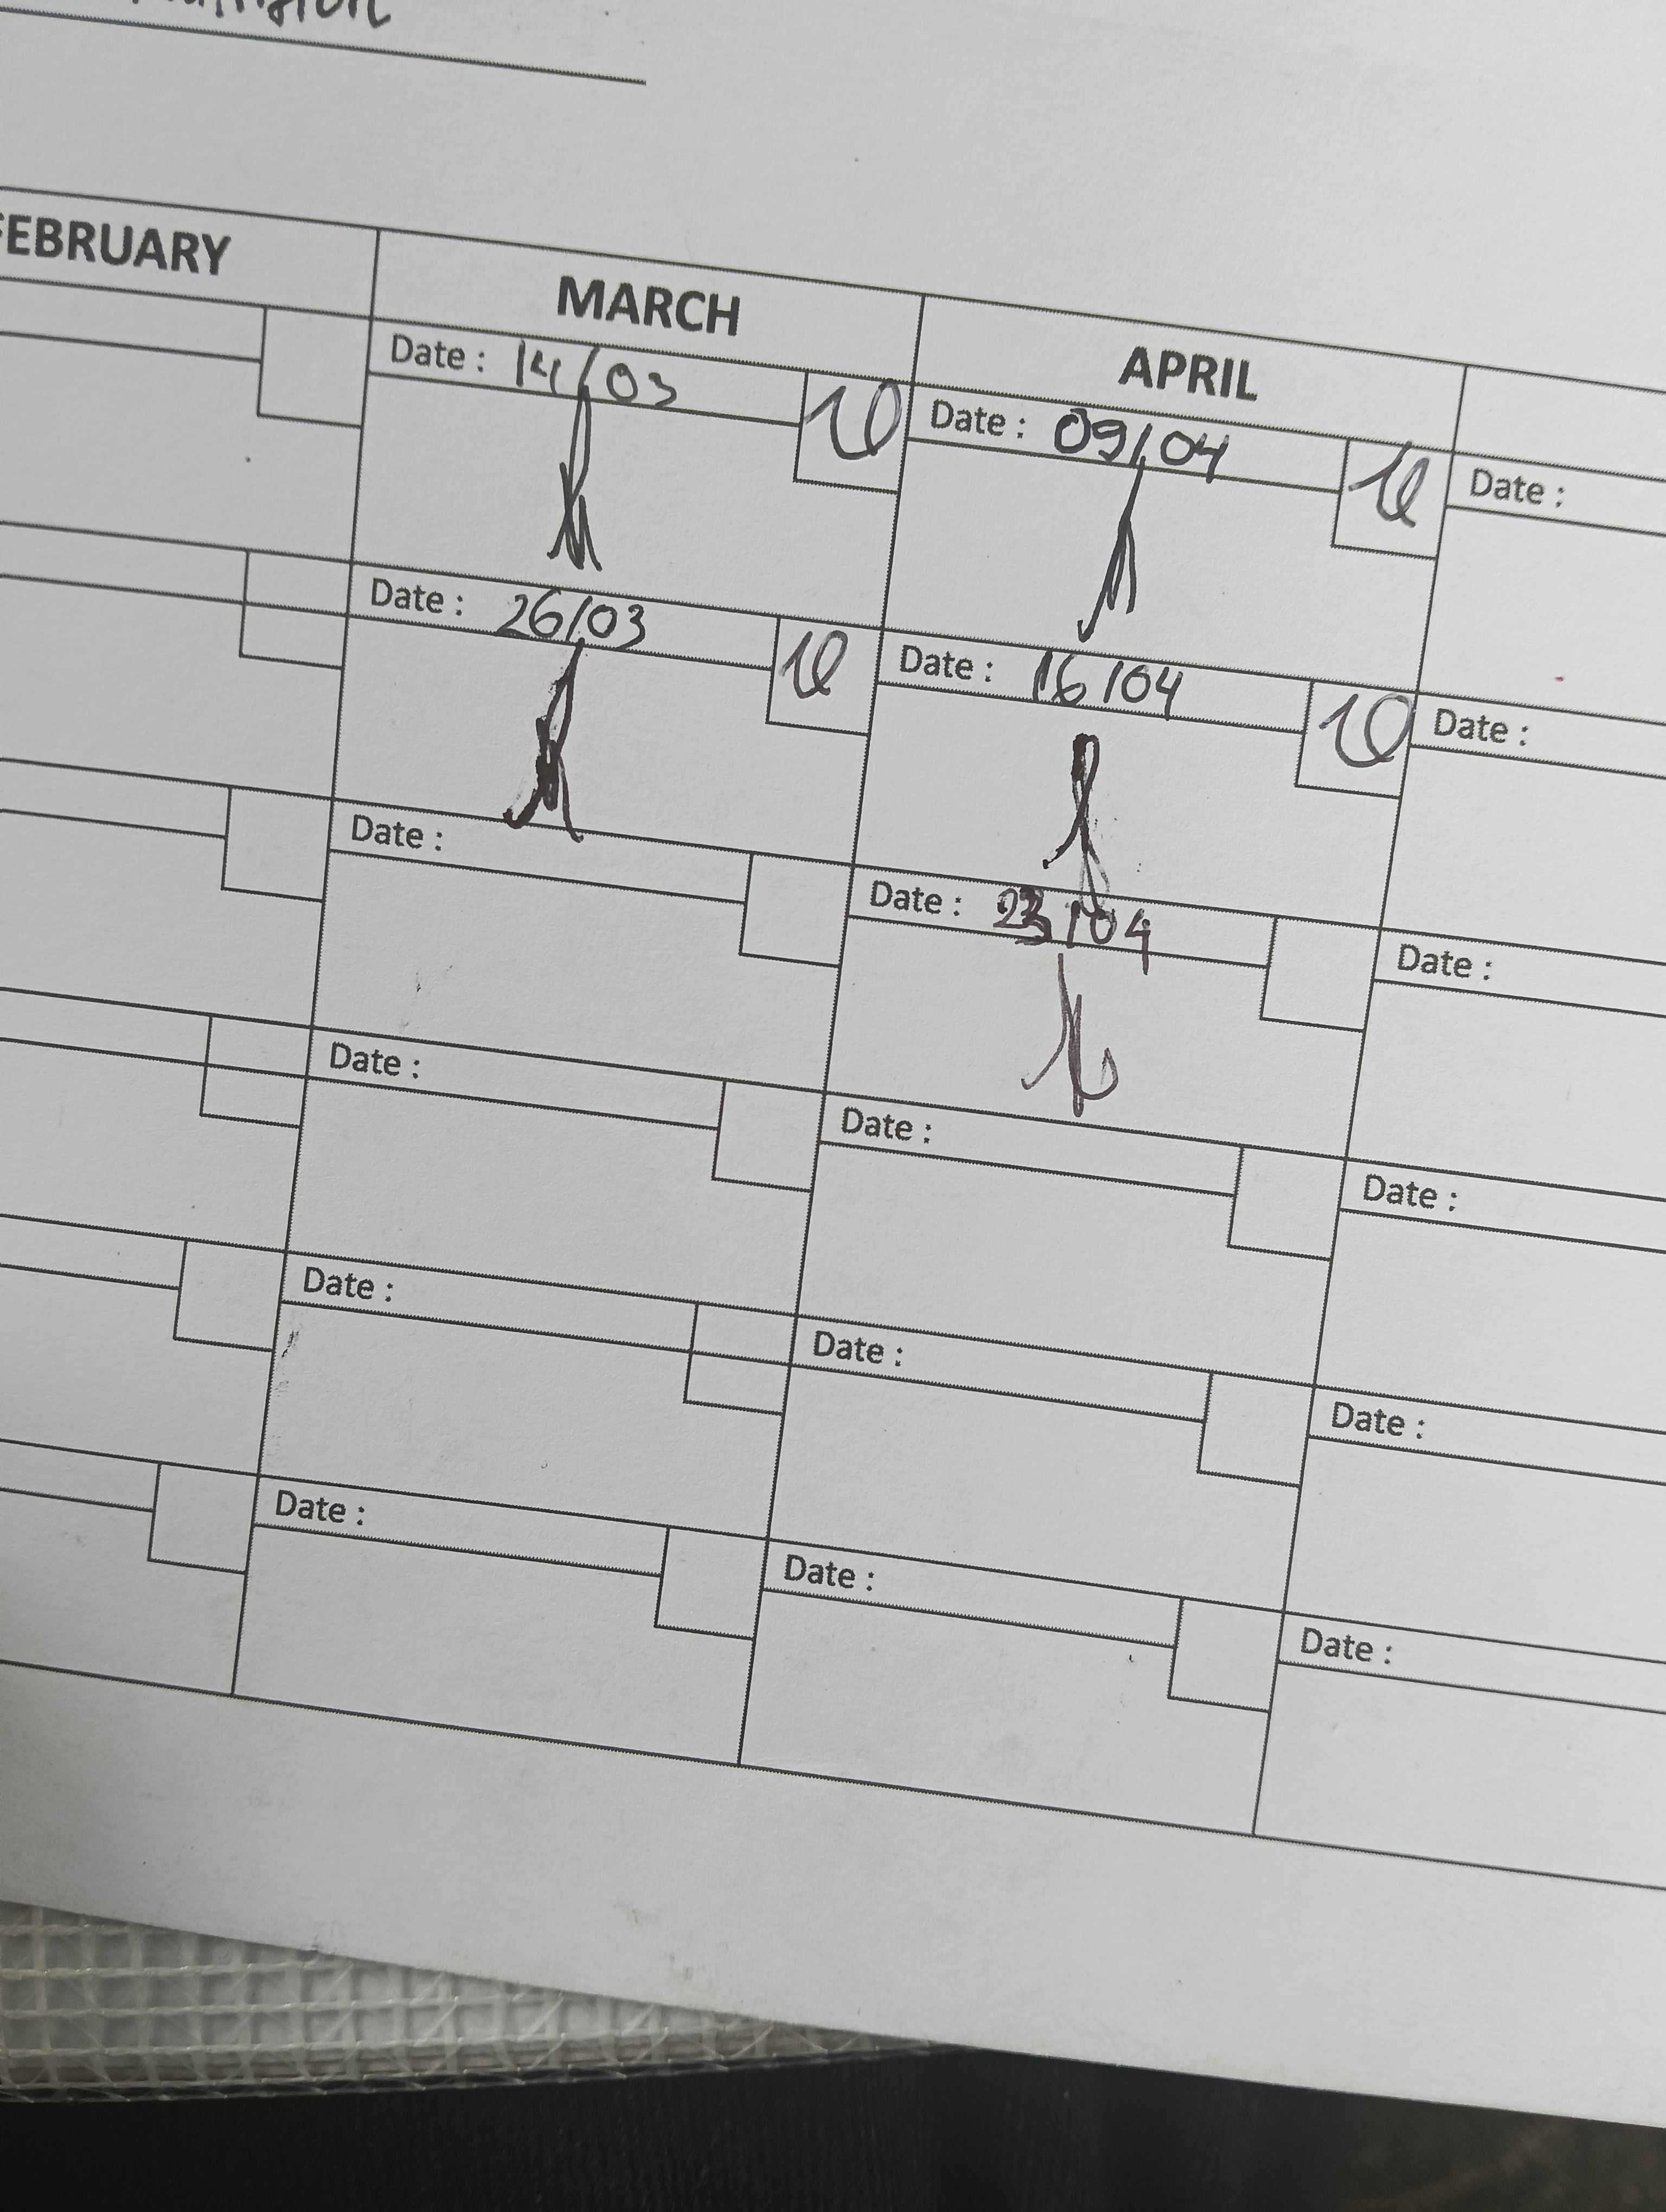 FEBRUARY MARCH APRIL
Date : 14/03
Date : 09/04
Date :
Date : 26/03
Date : 16/04
Date :
Date :
Date : 23/04
Date :
Date :
Date :
Date :
Date :
Date :
Date :
Date :
Date :
Date :